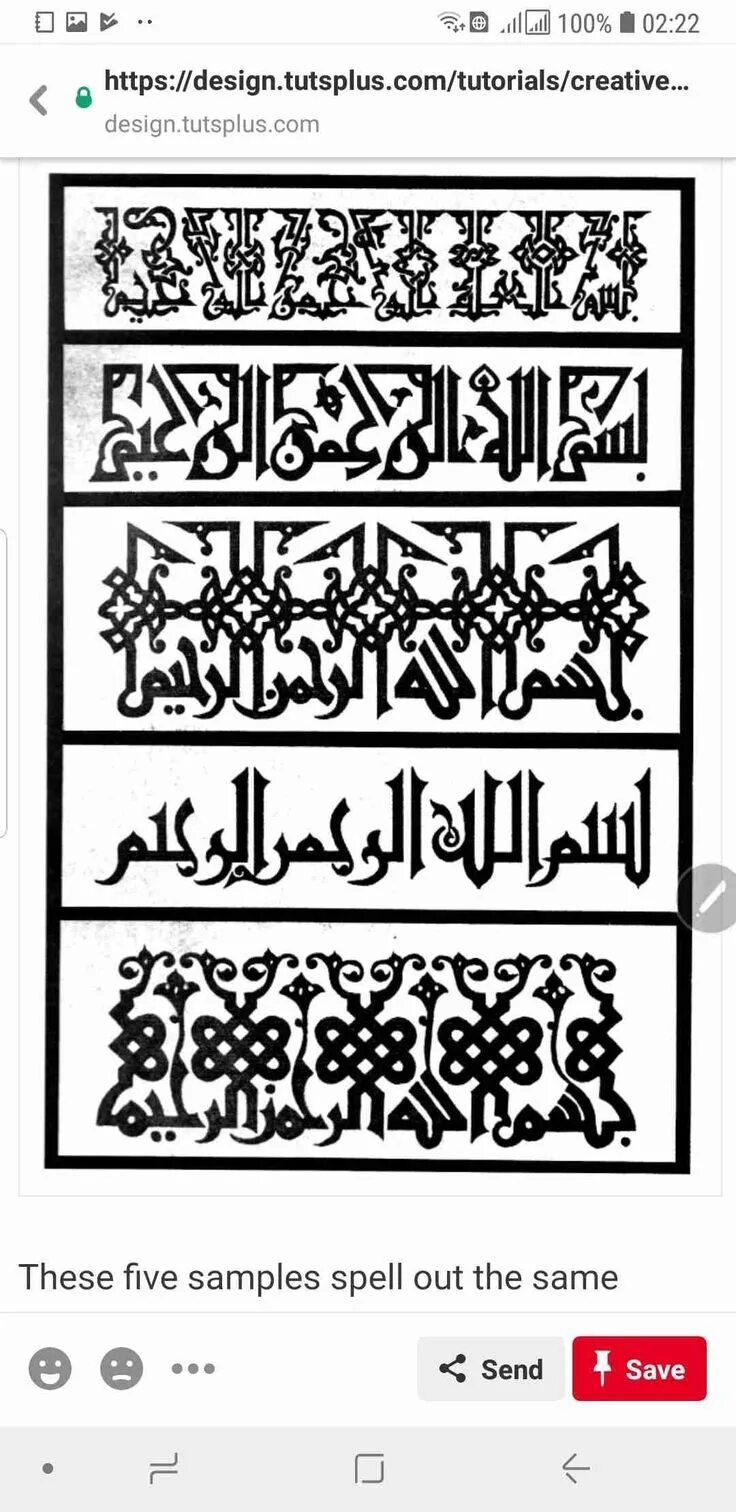 100% 02:22
https://design.tutsplus.com/tutorials/creative...
design.tutsplus.com
بسم الله الرحمن الرحيم
بسم الله الرحمن الرحيم
بسم الله الرحمن الرحيم
بسم الله الرحمن الرحيم
بسم الله الرحمن الرحيم
These five samples spell out the same
Send Save